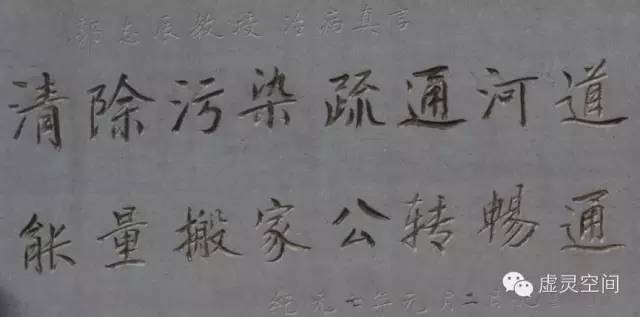 郭志辰教授 治病真言
清除污染疏通河道
能量搬家公转暢通
纪元七年元月二日
虚灵空间